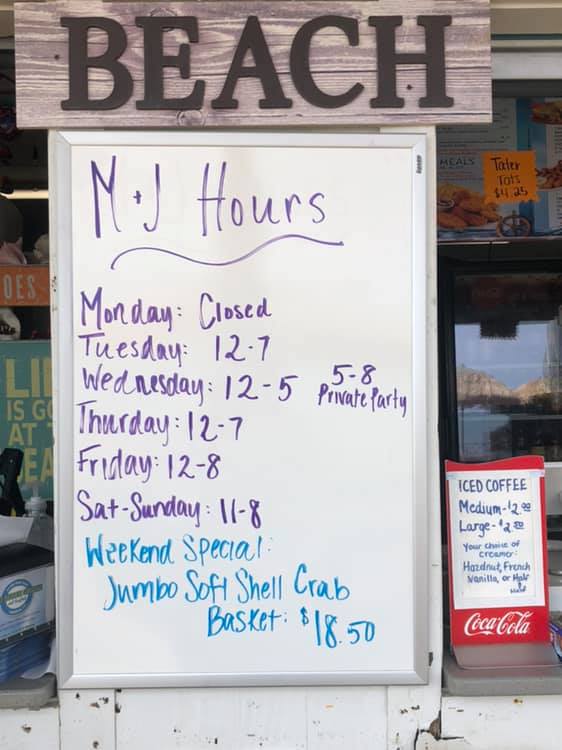 BEACH
M+J Hours
Monday: Closed
Tuesday: 12-7
Wednesday: 12-5 5-8
Private Party
Thurday: 12-7
Friday: 12-8
Sat-Sunday: 11-8
Weekend Special:
Jumbo Soft Shell Crab
Basket: $18.50
MEALS
Tater
Tots
$4.25
OES
IS GO
AT T
ICED COFFEE
Medium-$2.00
Your choice of
creamer:
Hazelnut, French
Vanilla, or Half
&
Half
Coca-Cola